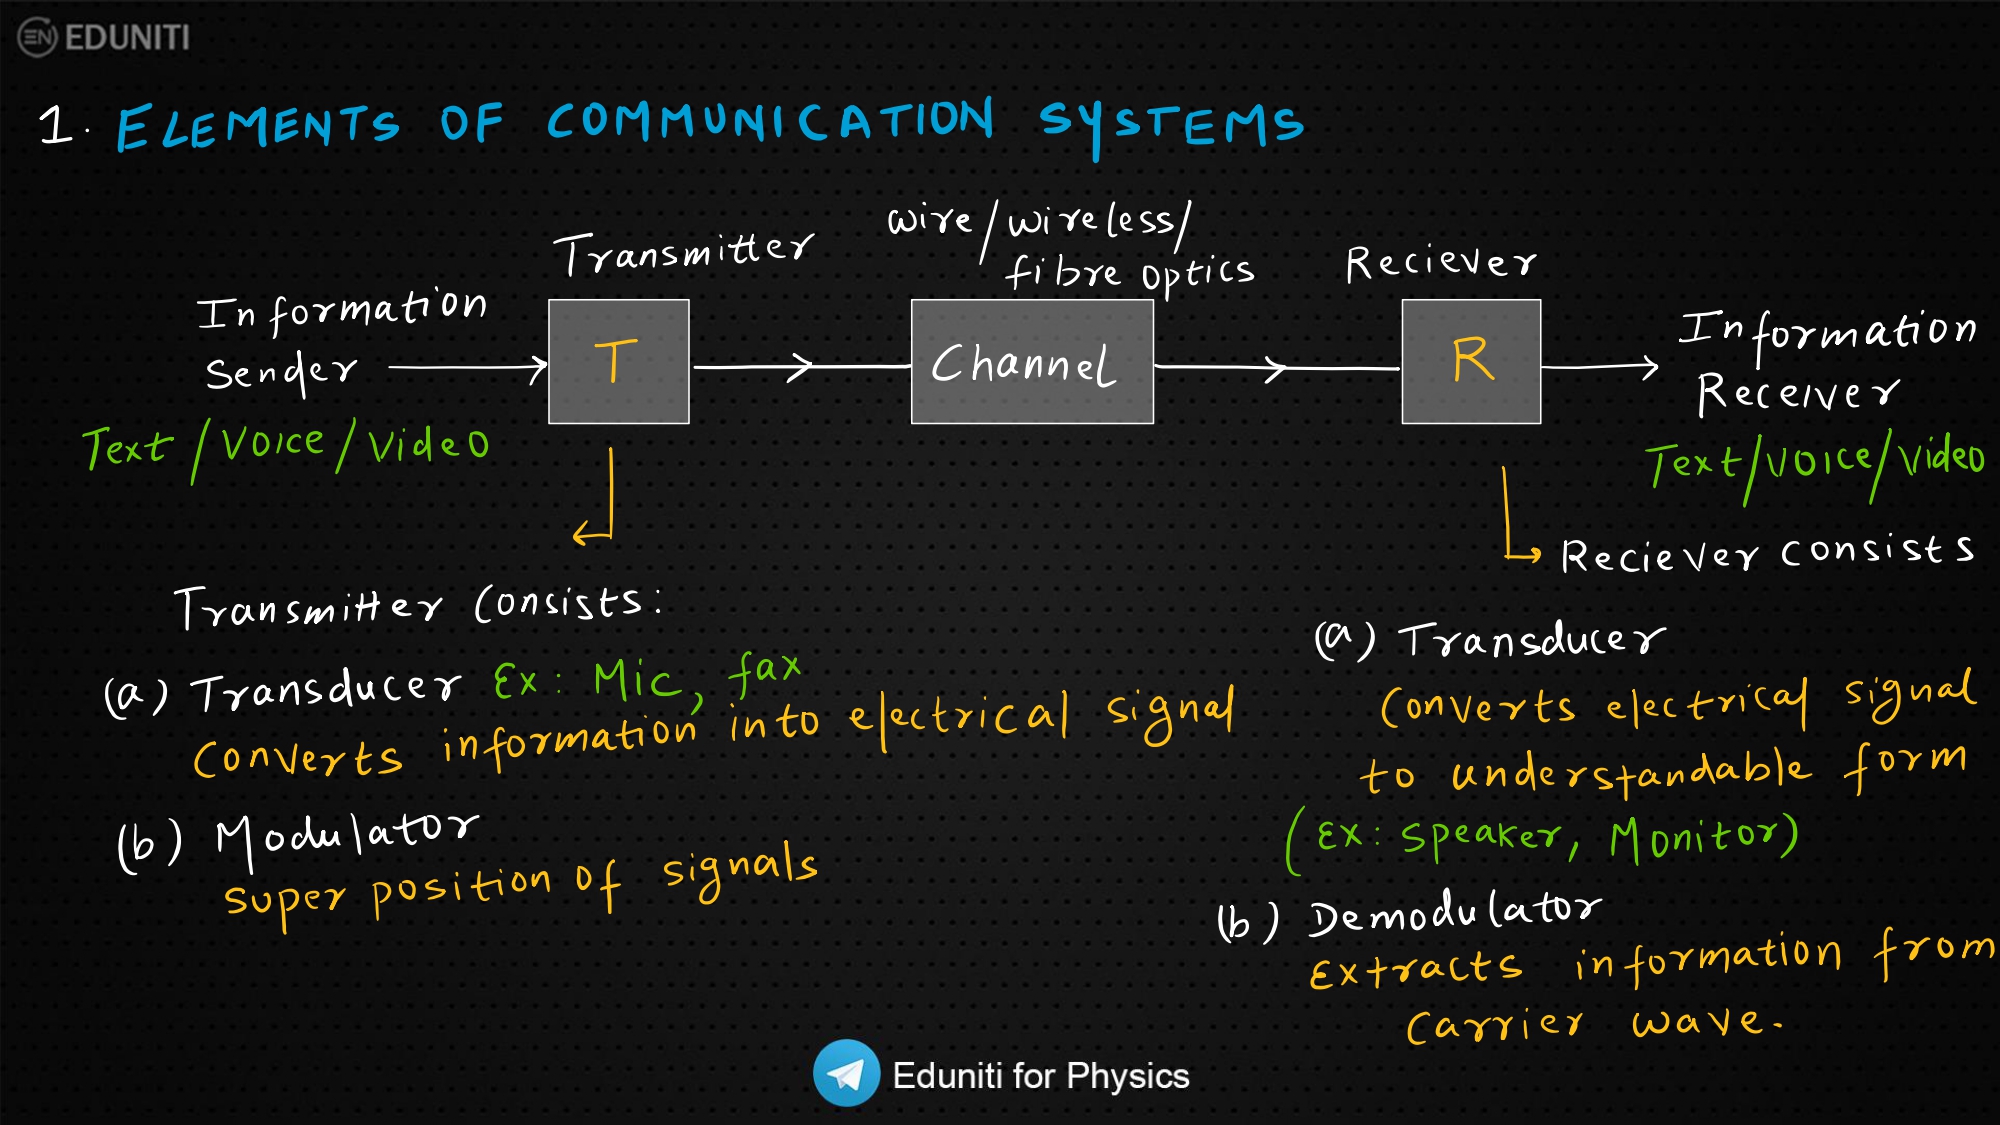 EN EDUNITI
1. ELEMENTS OF COMMUNICATION SYSTEMS
Information
Sender
Text/Voice/Video
Transmitter
T
wire/wireless/
fibre optics
Channel
Reciever
R
Information
Receiver
Text/Voice/Video
Transmitter Consists:
(a) Transducer Ex: Mic, fax
Converts information into electrical signal
(b) Modulator
super position of signals
Reciever consists
(a) Transducer
Converts electrical signal
to understandable form
(Ex: speaker, Monitor)
(b) Demodulator
Extracts information from
carrier wave.
Eduniti for Physics